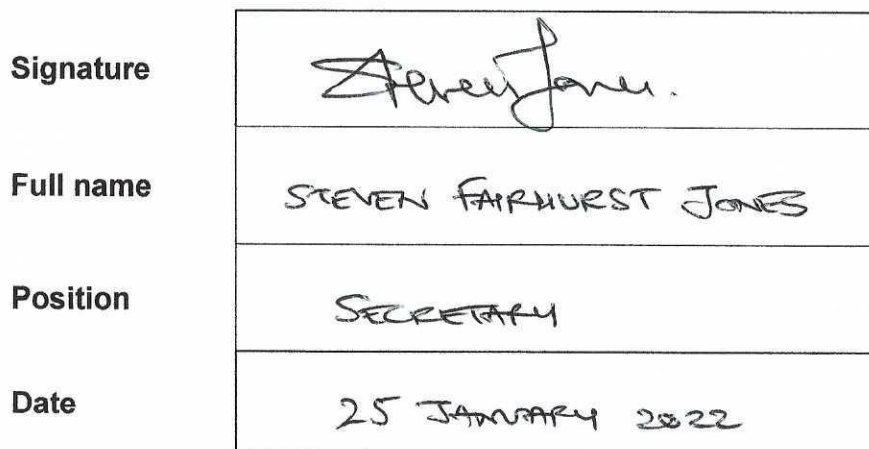 Signature Steven Jones.
Full name STEVEN FAIRHURST JONES
Position SECRETARY
Date 25 JANUARY 2022